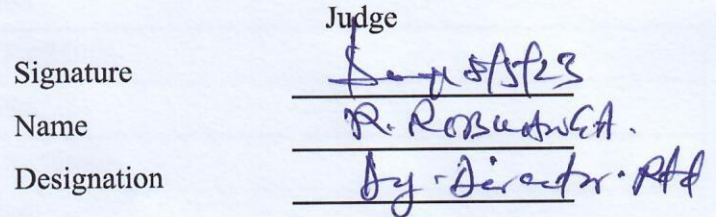 Judge
Signature 5/5/23
Name R. ROBUAWGA.
Designation Dy. Director. Rtd